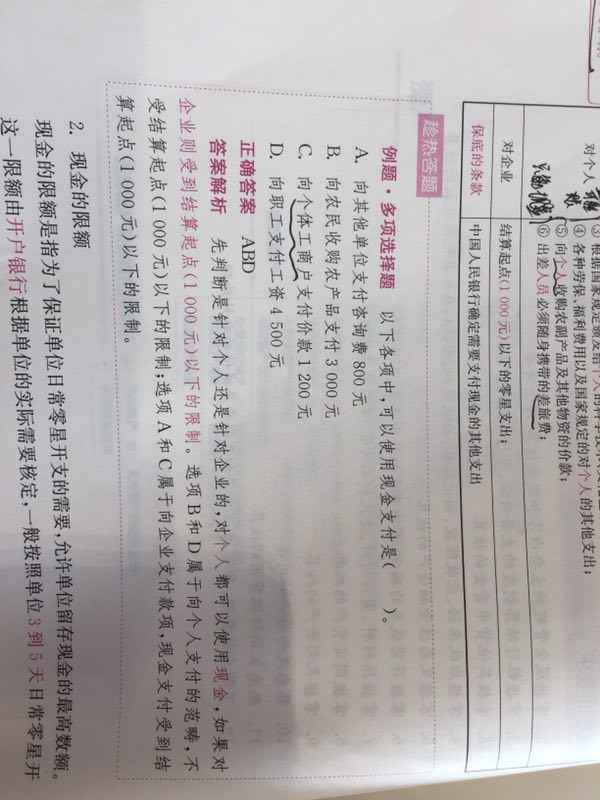 对个人
④ 各种劳保、福利费用以及国家规定的对个人的其他支出;
⑤ 向个人收购农副产品及其他物资的价款;
⑥ 出差人员必须随身携带的差旅费;
对企业
结算起点(1 000 元)以下的零星支出;
保底的条款
中国人民银行确定需要支付现金的其他支出
趁热答题
例题·多项选择题 以下各项中,可以使用现金支付是( )。
A. 向其他单位支付咨询费 800 元
B. 向农民收购农产品支付 3 000 元
C. 向个体工商户支付价款 1 200 元
D. 向职工支付工资 4 500 元
正确答案 ABD
答案解析 先判断是针对个人还是针对企业的,对个人都可以使用现金,如果对
企业则受到结算起点(1 000 元)以下的限制。选项 B 和 D 属于向个人支付的范畴,不
受结算起点(1 000 元)以下的限制;选项 A 和 C 属于向企业支付款项,现金支付受到结
算起点(1 000 元)以下的限制。
2. 现金的限额
现金的限额是指为了保证单位日常零星开支的需要,允许单位留存现金的最高数额。
这一限额由开户银行根据单位的实际需要核定,一般按照单位 3 到 5 天日常零星开